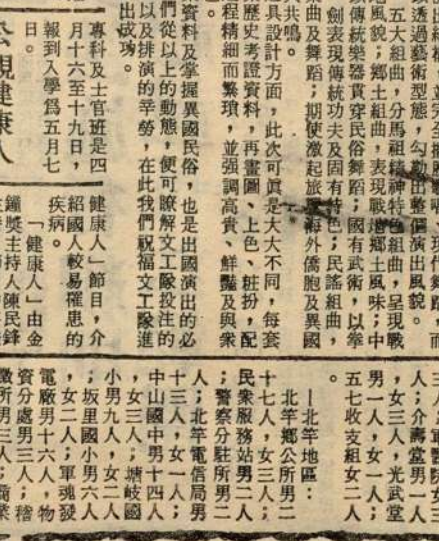 以透過藝術型態,勾勒出整個演出風貌。
五大組曲,分馬祖精神特色組曲,呈現戰
地風貌;鄉土組曲,表現戰地鄉土風味;中
以傳統樂器貫穿民俗舞蹈;國有武術,以拳
劍表現傳統功夫及固有特色;民謠組曲,
樂曲及舞蹈;期使激起旅居海外僑胞及異國
人共鳴。
道具設計方面,此次可眞是大大不同,每套
歷史考證資料,再畫圖、上色、粧扮,配
程精細而繁瑣,並强調高貴、鮮豔及與衆
資料及掌握異國民俗,也是出國演出的必
們從以上的動態,便可瞭解文工隊投注的
以及排演的辛勞,在此我們祝福文工隊進
出成功。
專科及士官班是四
月十六至十九日,
報到入學爲五月七
日。
公視健康人
健康人」節目,介
紹國人較易罹患的
疾病。
「健康人」由金
鐘獎主持人陳民鋒
人;介壽堂男一人
,女三人,光武堂
男一人,女一人;
五七收支組女二人
。
—北竿地區:
北竿鄉公所男二
十七人,女三人;
民衆服務站男二人
;警察分駐所男二
人;北竿電信局男
十三人,女一人;
中山國中男十四人
,女三人;塘岐國
小男九人,女二人
;坂里國小男六人
,女二人;軍魂發
電廠男十六人,物
資分處男三人;稽
徵所男三人;